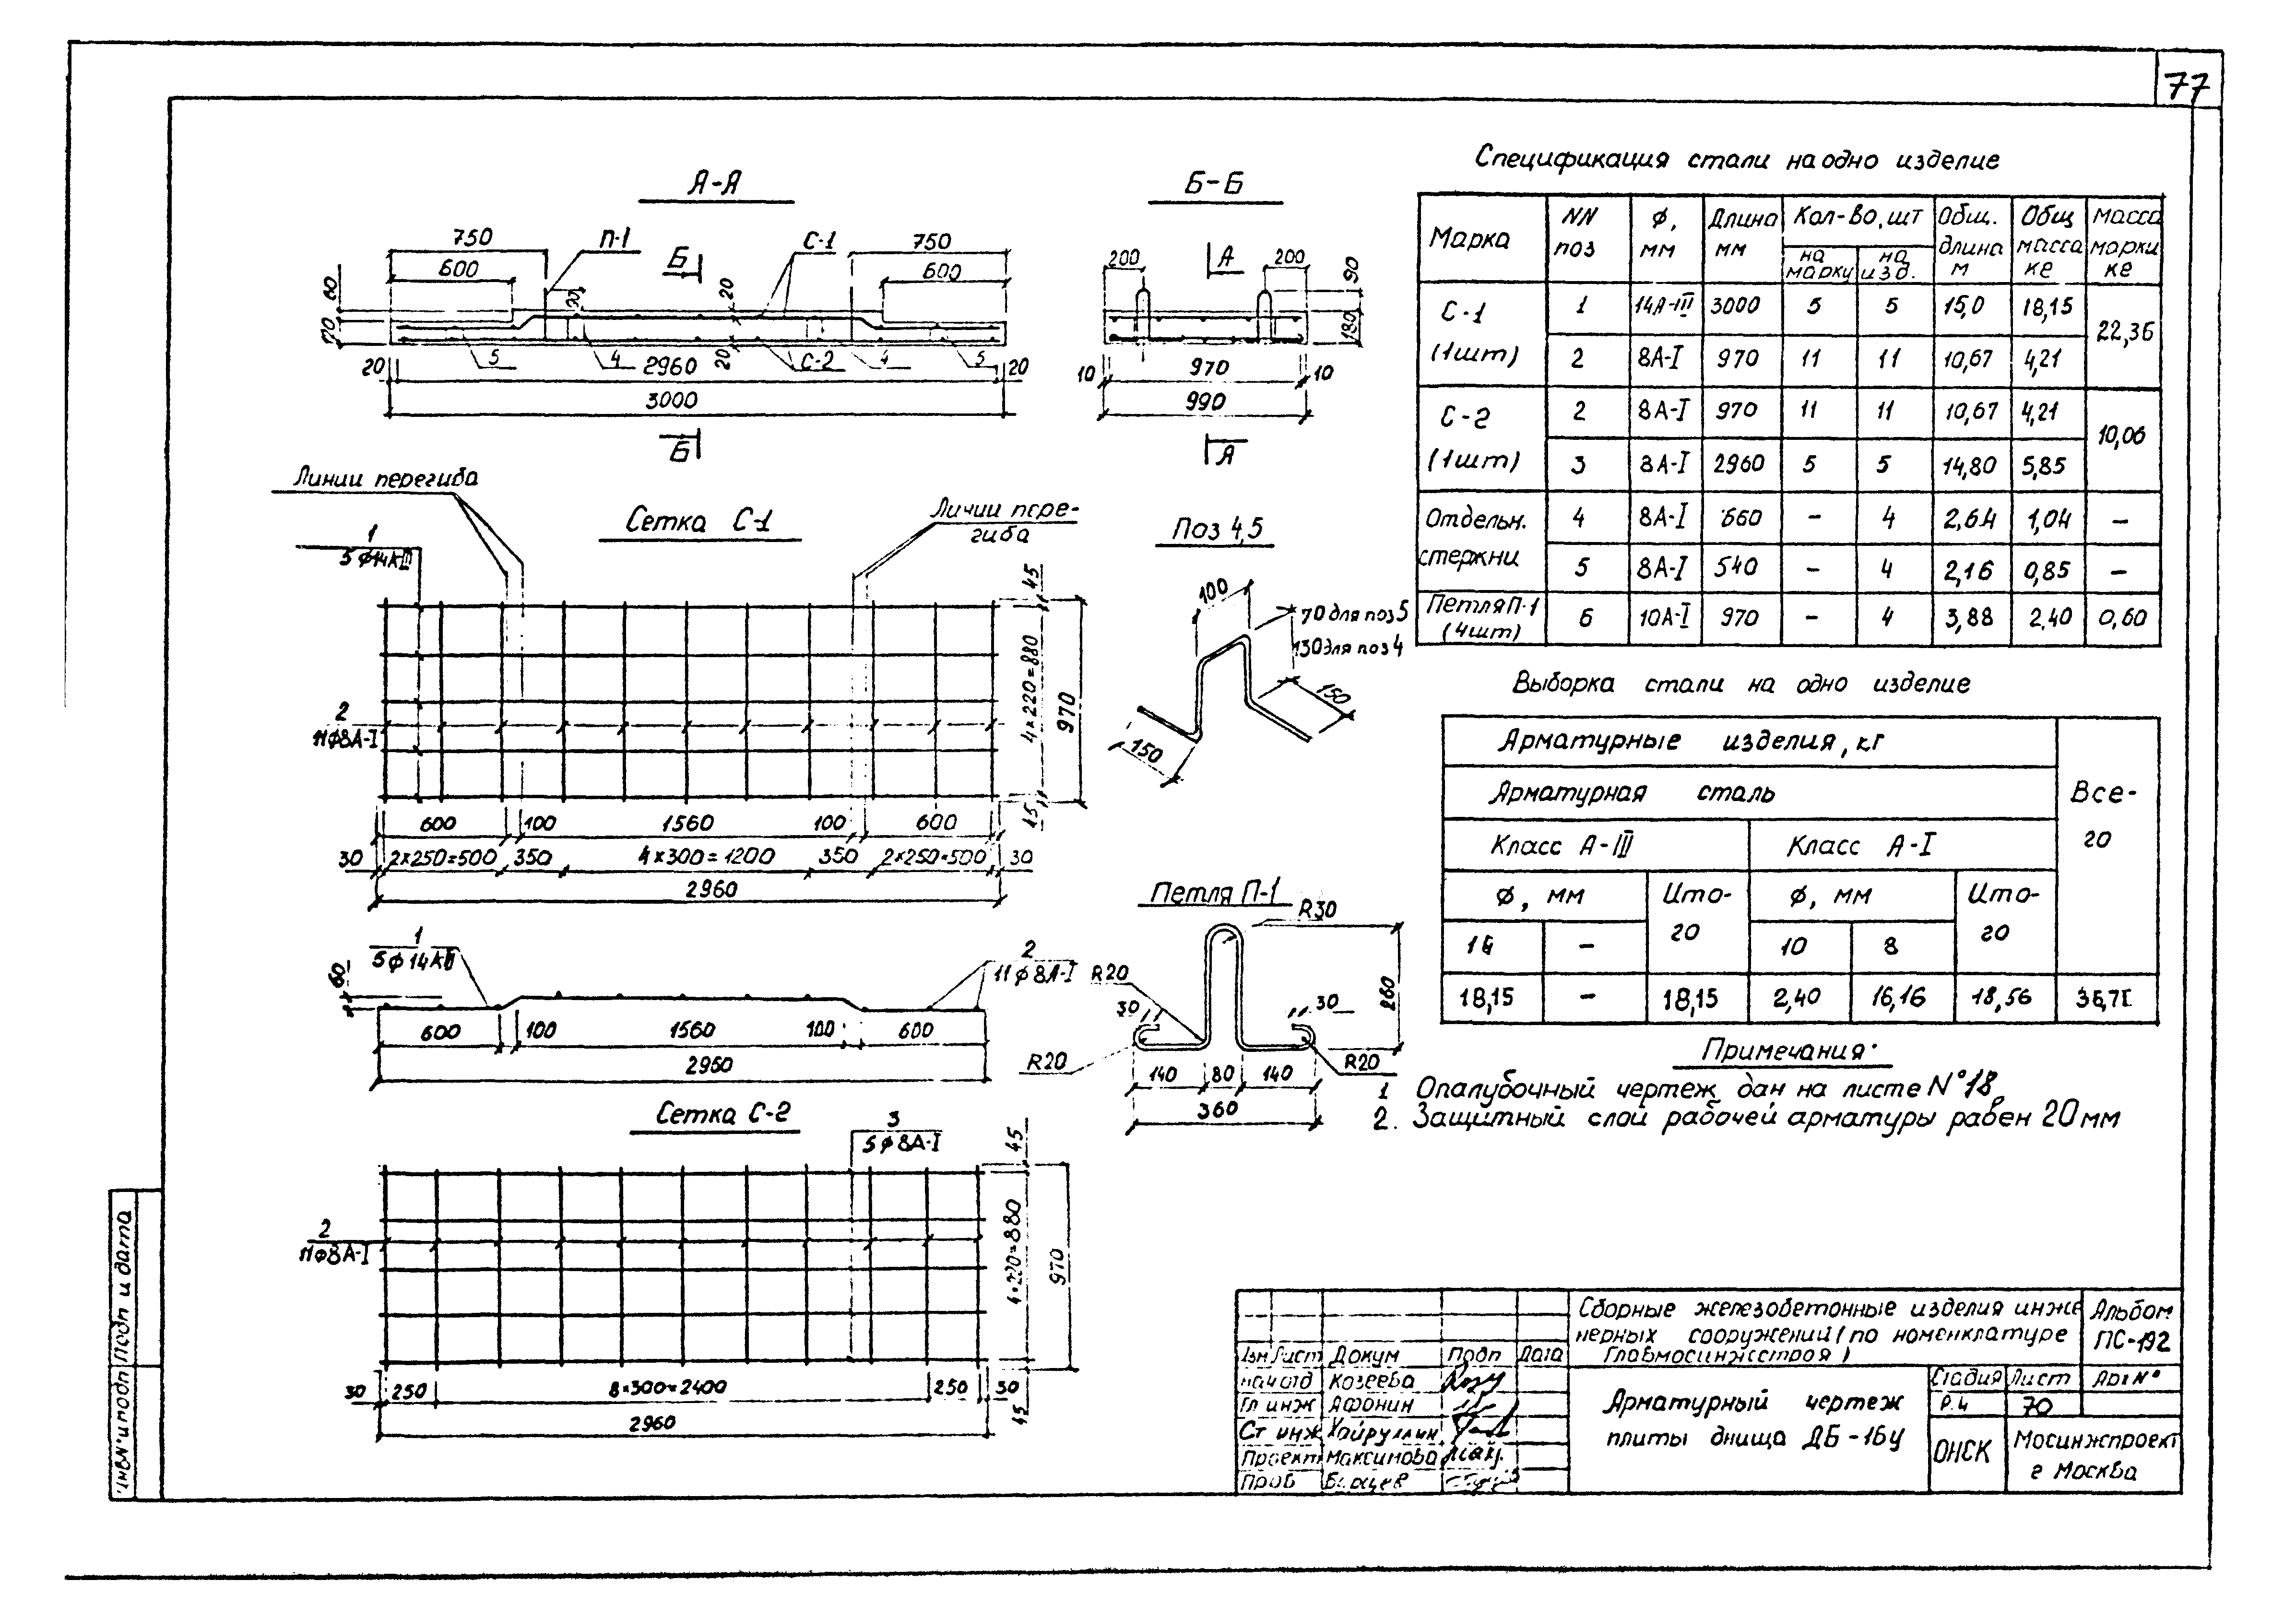 77
А-А
750
П-1
Б
С-1
750
600
600
60
120
20
20
5
4
2960
С-2
4
5
20
20
3000
Б
Б-Б
200
А
200
90
180
10
970
10
990
А
Линии перегиба
Сетка С-1
Линии пере-
гиба
1
5ф14АIII
2
11ф8А-I
45
4×220=880
970
45
600
100
1560
100
600
30
2×250=500
350
4×300=1200
350
2×250=500
30
2960
1
5ф14АIII
2
11ф8А-I
60
600
100
1560
100
600
2950
Сетка С-2
3
5ф8А-I
2
11ф8А-I
45
4×220=880
970
45
30
250
8×300=2400
250
30
2960
Поз 4,5
100
70 для поз 5
130 для поз 4
150
150
Петля П-1
R30
R20
30
30
260
R20
R20
140
80
140
360
Спецификация стали на одно изделие
Марка
NN поз
ф, мм
Длина мм
Кол-во, шт
на марку
на изд.
Общ. длина м
Общ масса ке
масса марки ке
С-1 (1шт)
1 14А-III 3000 5 5 15,0 18,15
22,36
2 8А-I 970 11 11 10,67 4,21
С-2 (1шт)
2 8А-I 970 11 11 10,67 4,21
10,06
3 8А-I 2960 5 5 14,80 5,85
Отдельн. стержни
4 8А-I 660 – 4 2,64 1,04 –
5 8А-I 540 – 4 2,16 0,85 –
Петля П-1 (4шт)
6 10А-I 970 – 4 3,88 2,40 0,60
Выборка стали на одно изделие
Арматурные изделия, кг
Все-
го
Арматурная сталь
Класс А-III
Класс А-I
ф, мм
Ито-
го
ф, мм
Ито-
го
14
–
10
8
18,15 – 18,15 2,40 16,16 18,56 36,71
Примечания:
1 Опалубочный чертеж дан на листе N°18
2. Защитный слой рабочей арматуры равен 20 мм
Сборные железобетонные изделия инже
нерных сооружений (по номенклатуре
Главмосинжстроя)
Альбом
ПС-192
Изм Лист Докум Подп Дата
нач отд Козеева
Гл инж Афонин
Ст инж Хайруллин
Проект Максимова
Пров
Арматурный чертеж
плиты днища ДБ-16у
Стадия Лист Арх N°
Р.Ч 70
ОНСК
Мосинжпроект
г Москва
Подп и дата
Инв.N° и подп